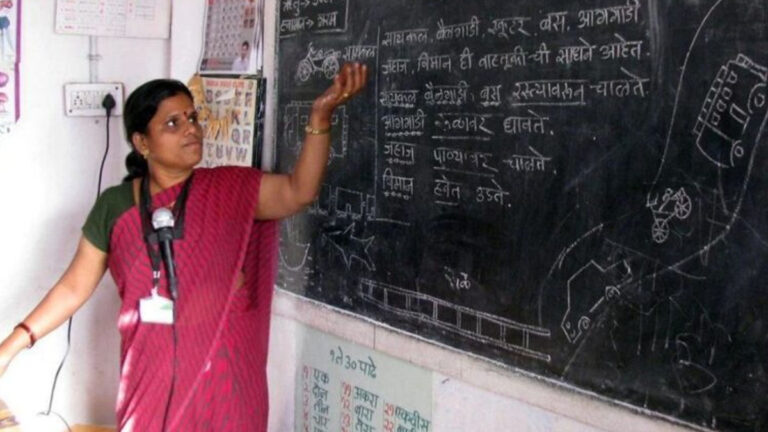 हवामान → गरम
सायकल
सायकल, बैलगाडी, स्कूटर, बस, आगगाडी
जहाज, विमान ही वाहतूकीची साधने आहेत.
सायकल बैलगाडी, बस रस्त्यावरून चालते.
आगगाडी रूळावर धावते.
जहाज पाण्यावर चालते.
विमान हवेत उडते.
१ ते ३० पाढे
एक ११ अकरा एकवीस
दोन बारा
तीन
चार